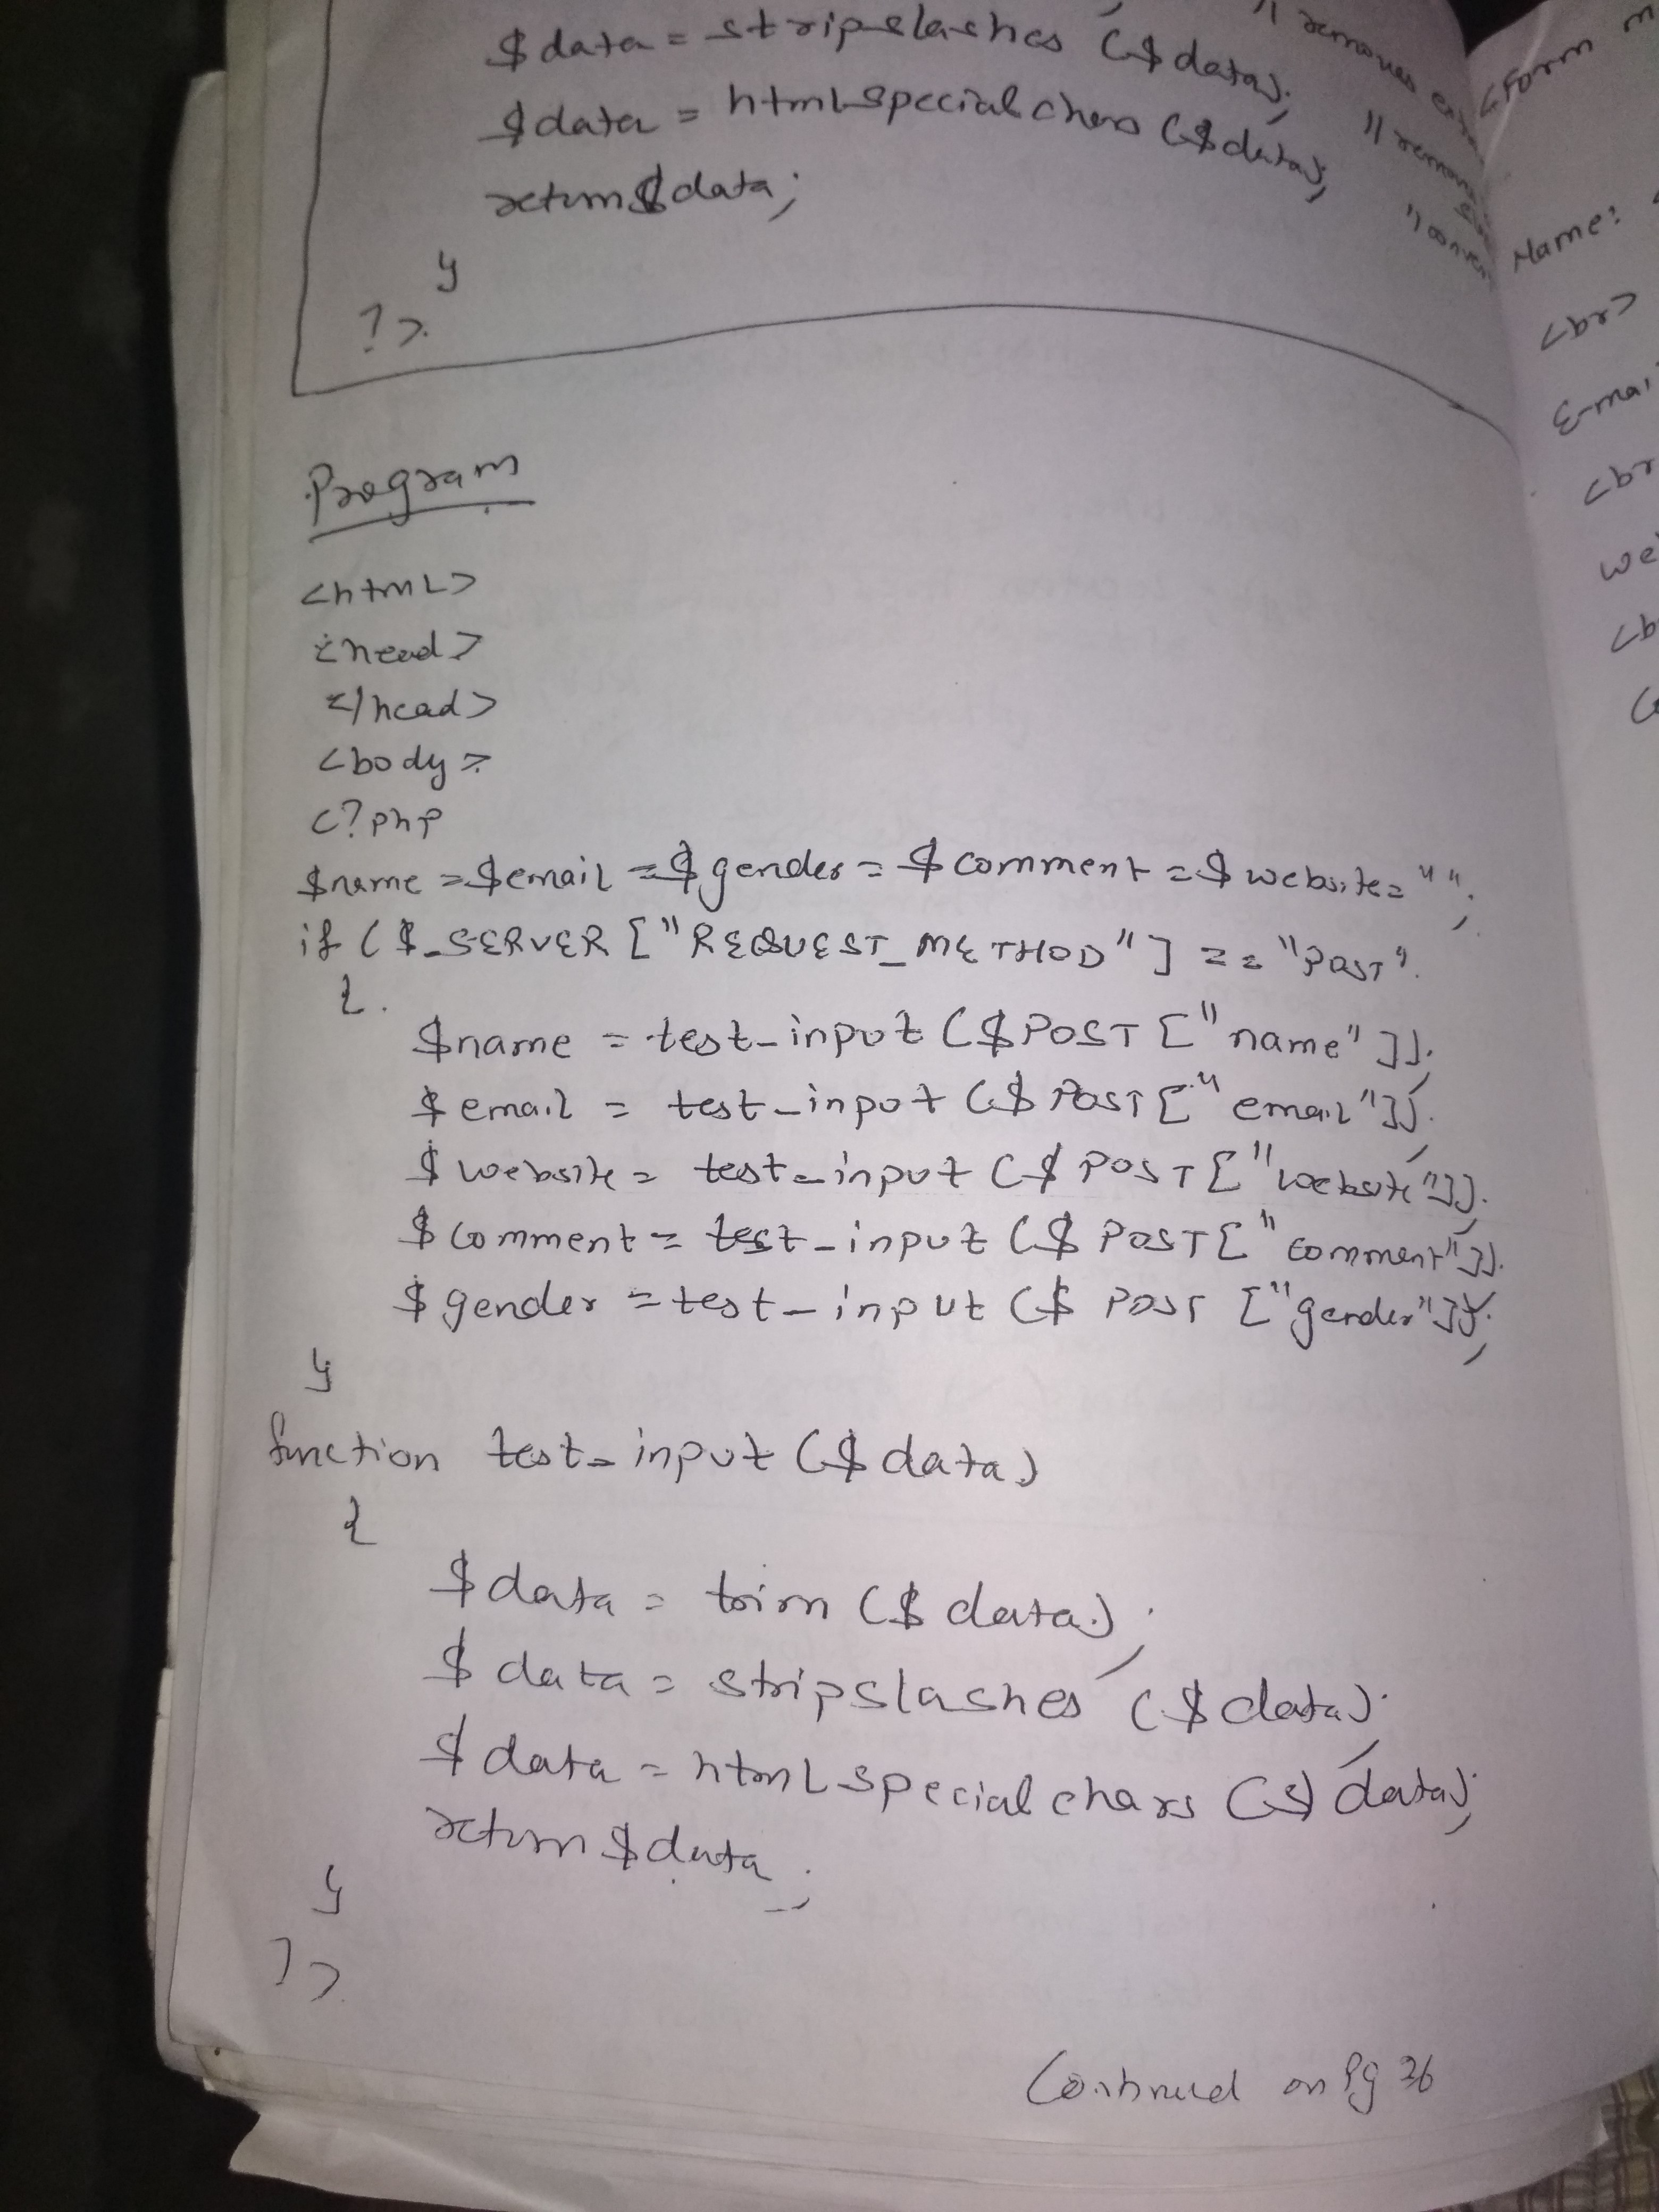 $data = stripslashes ($data);
$data = htmlspecialchars ($data);
return $data;
}
?>
// removes
//
//
Program
<html>
<head>
</head>
<body>
<?php
$name = $email = $gender = $comment = $website = "";
if ($_SERVER ["REQUEST_METHOD"] == "POST"
{
$name = test_input ($POST ["name"]);
$email = test_input ($POST ["email"]);
$website = test_input ($POST ["website"]);
$comment = test_input ($POST ["comment"]);
$gender = test_input ($POST ["gender"]);
}
function test_input ($data)
{
$data = trim ($data);
$data = stripslashes ($data);
$data = htmlspecialchars ($data);
return $data;
}
?>
Continued on Pg 26
<form m
Name: <
<br>
E-mai
<br
we
<b